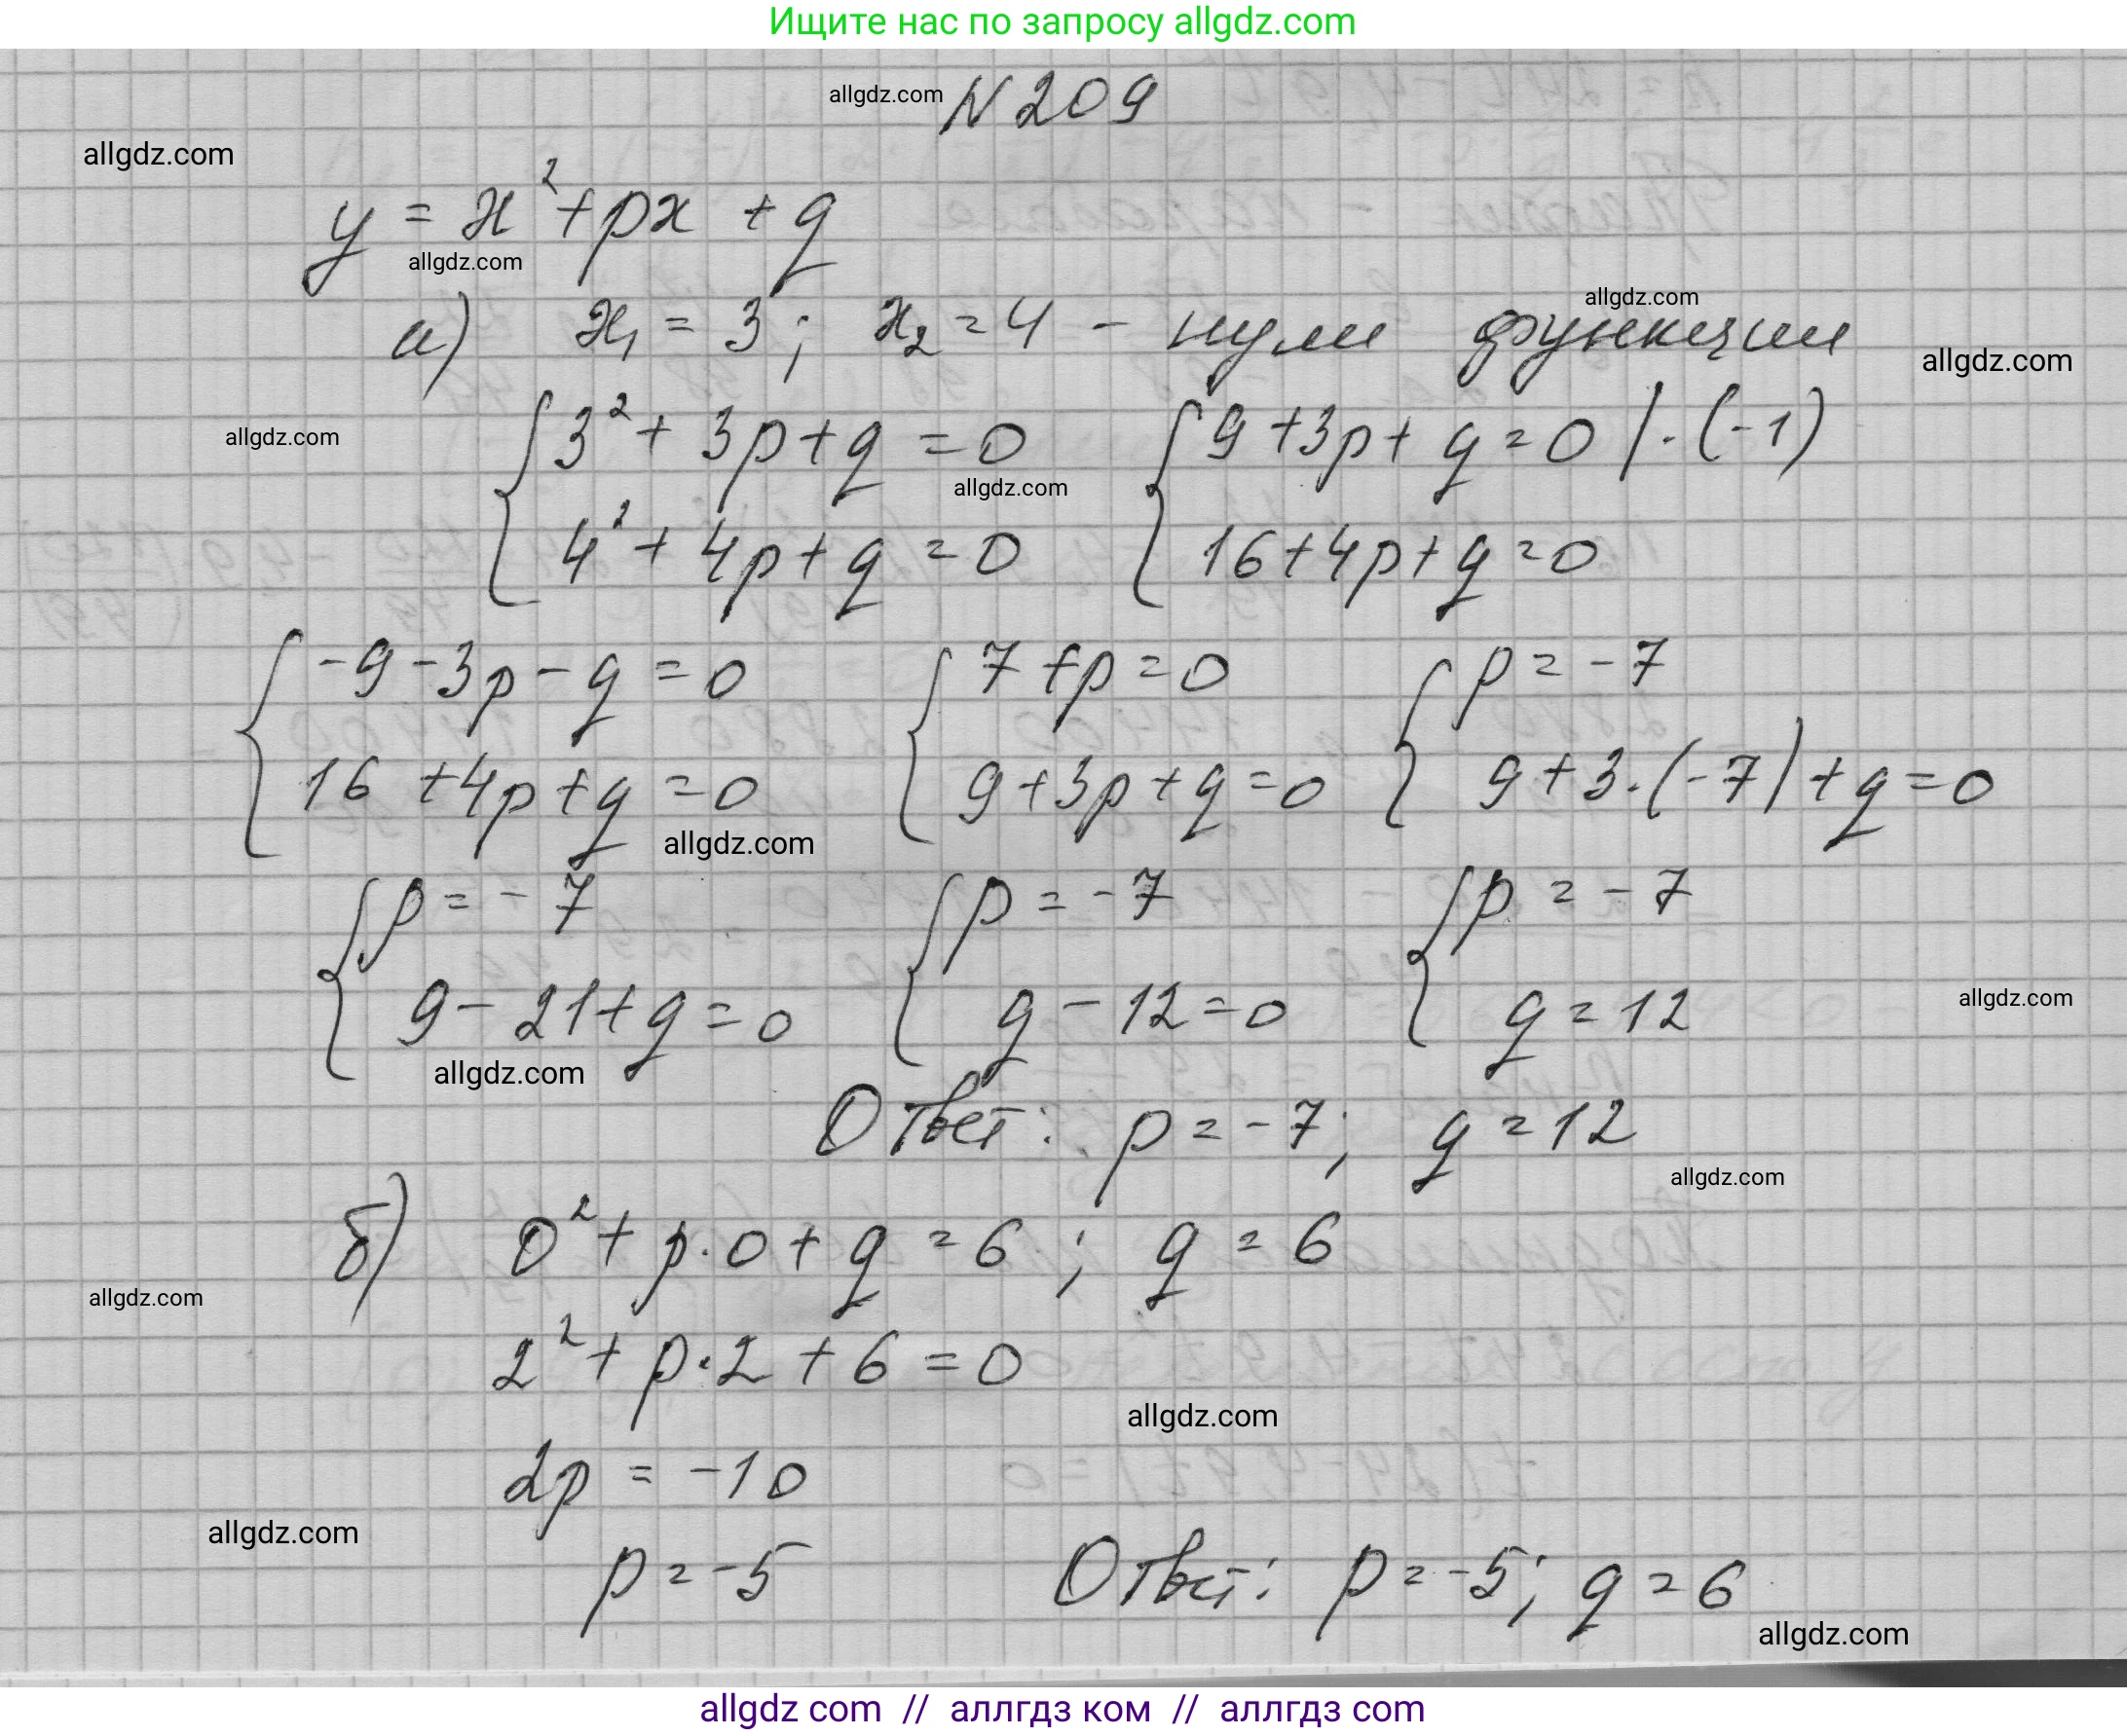 Ищите нас по запросу allgdz.com
allgdz.com N 209
allgdz.com
y = x² + px + q
allgdz.com
allgdz.com
а) x₁ = 3; x₂ = 4 - нули функции
allgdz.com
allgdz.com
{ 3² + 3p + q = 0 { 9 + 3p + q = 0 | · (-1)
allgdz.com
4² + 4p + q = 0 16 + 4p + q = 0
{ -9 - 3p - q = 0 { 7 + p = 0 { p = -7
16 + 4p + q = 0 9 + 3p + q = 0 9 + 3 · (-7) + q = 0
allgdz.com
{ p = -7 { p = -7 { p = -7
allgdz.com
9 - 21 + q = 0 q - 12 = 0 q = 12
allgdz.com
Ответ: p = -7; q = 12
allgdz.com
б) 0² + p · 0 + q = 6; q = 6
allgdz.com
2² + p · 2 + 6 = 0
allgdz.com
2p = -10
allgdz.com
p = -5 Ответ: p = -5; q = 6
allgdz.com
allgdz com // аллгдз ком // аллгдз com